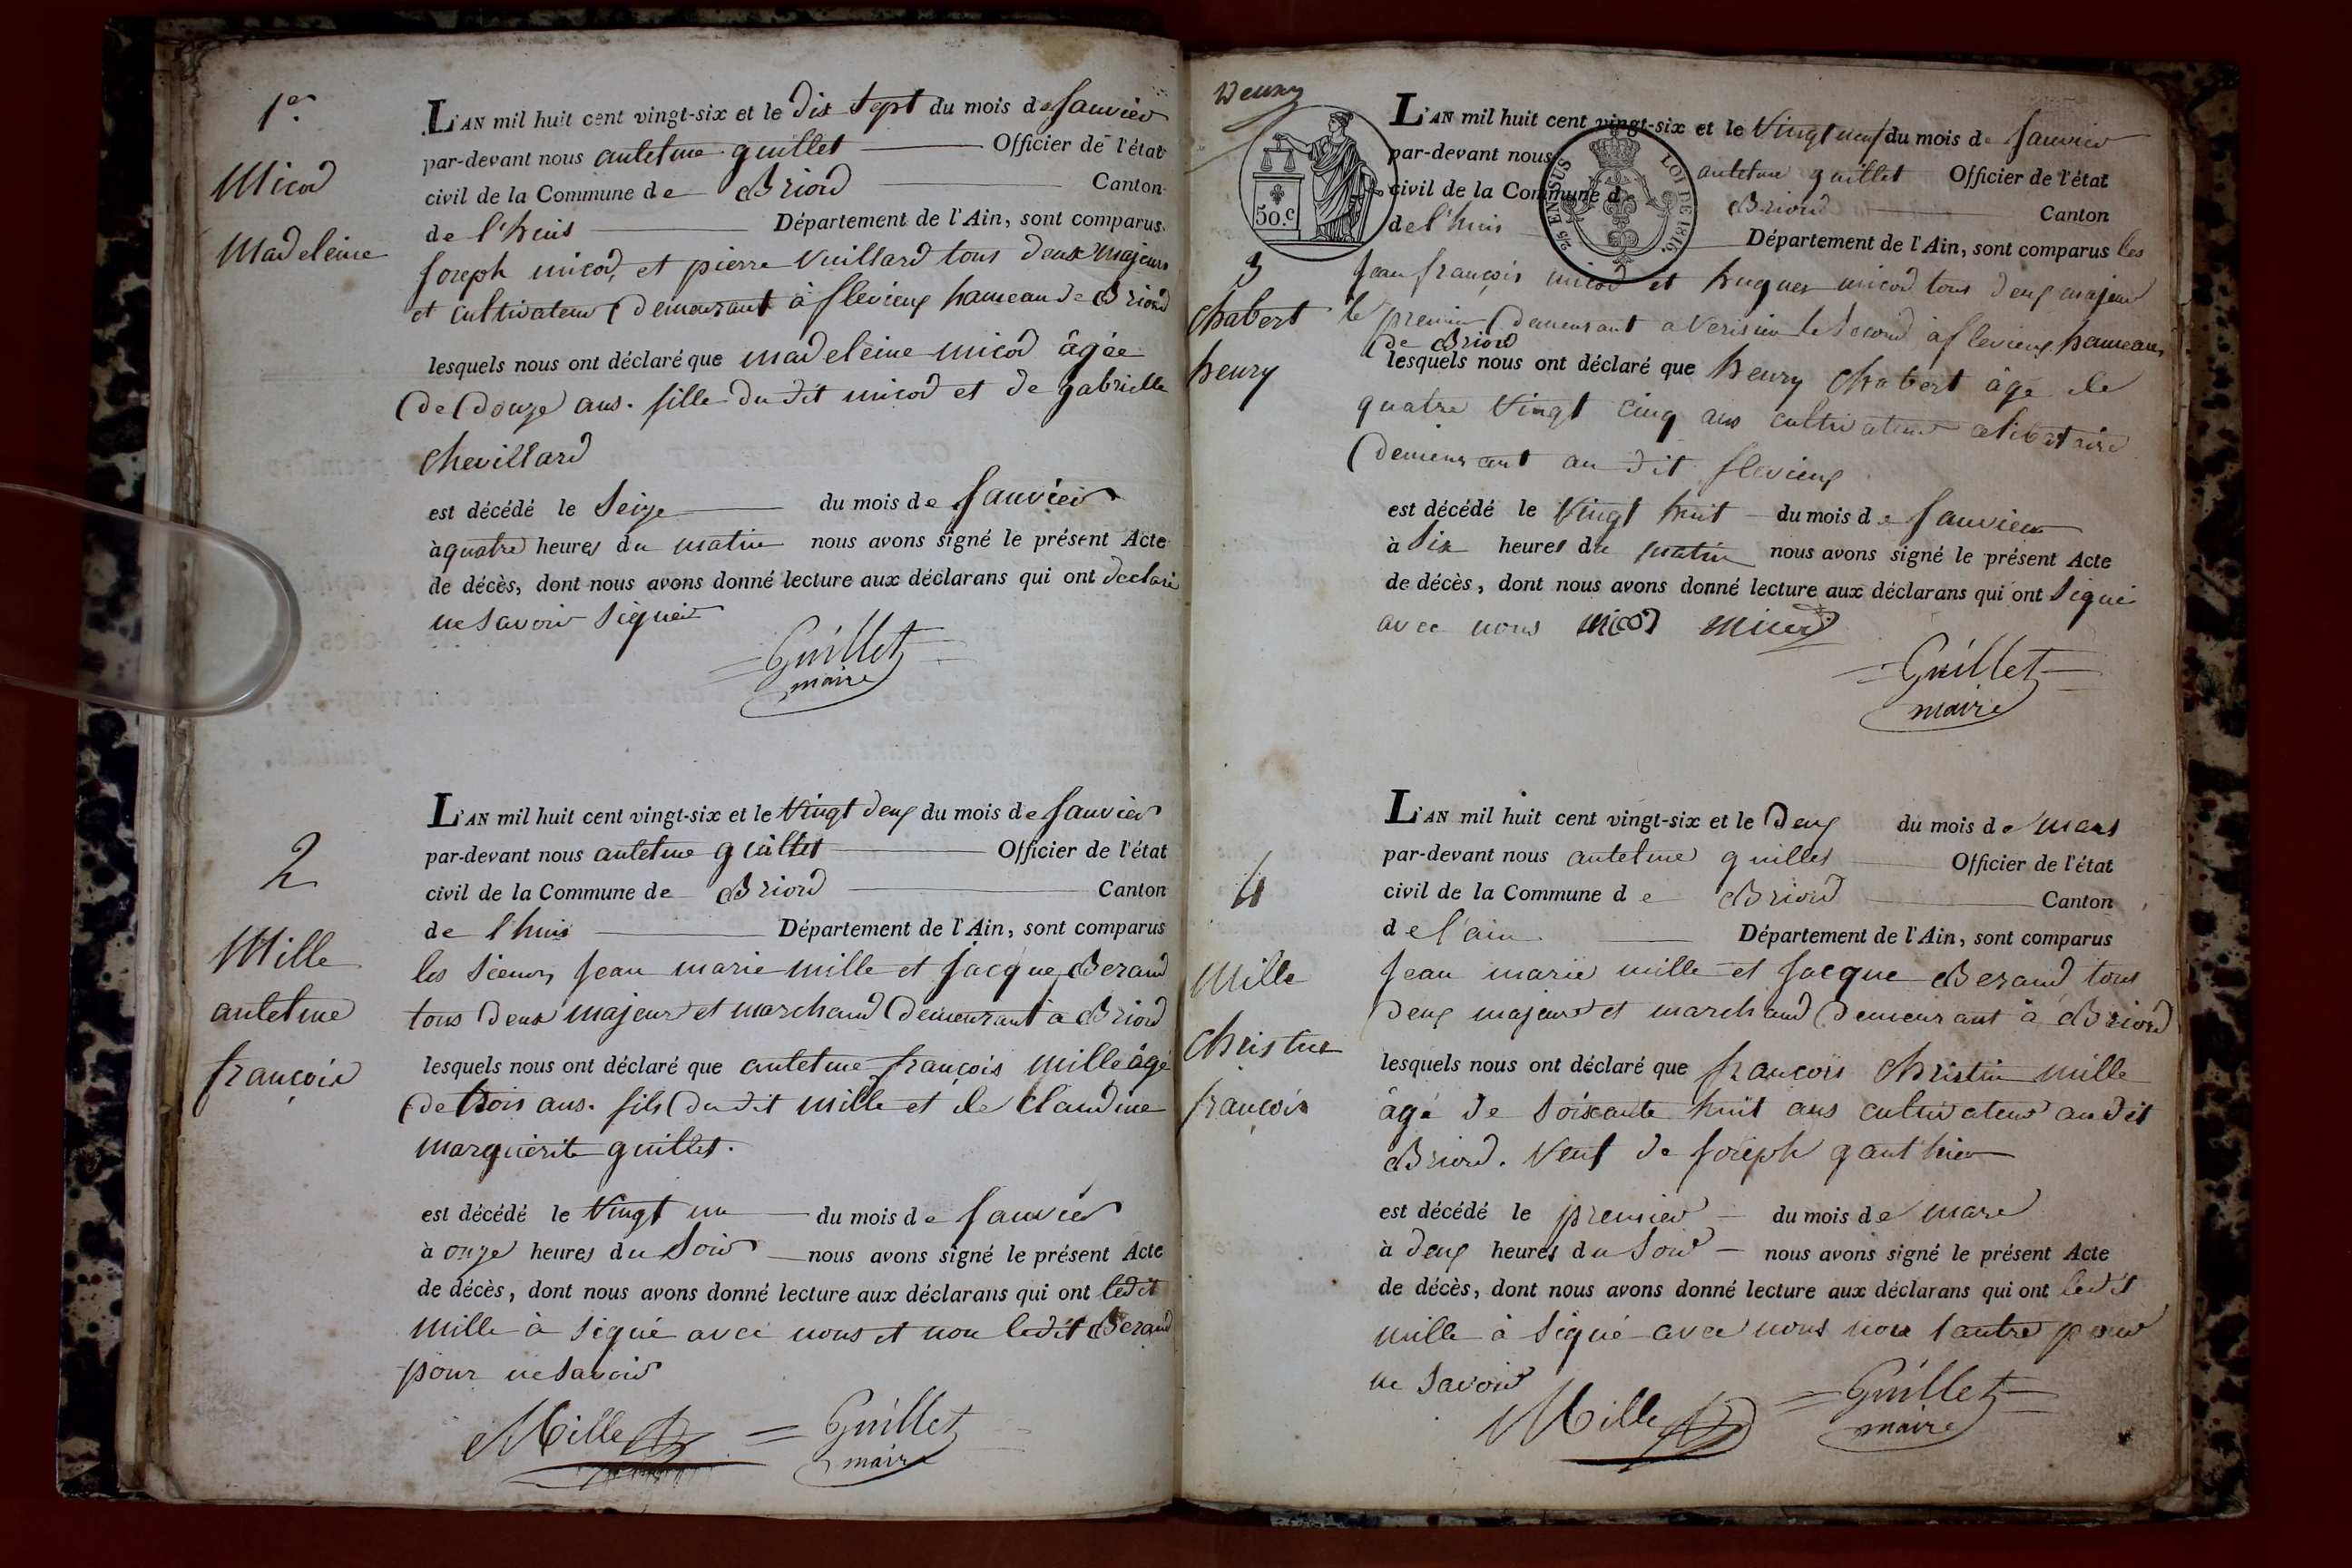 1er
Micod
Madeleine
L'AN mil huit cent vingt-six et le dix sept du mois de janvier
par-devant nous antelme guillet Officier de l'état
civil de la Commune de Briord Canton
de l'huis Département de l'Ain, sont comparus
joseph micod, et pierre Vuillard tous deux majeurs
et cultivateur demeurant à flevieux hameau de Briord
lesquels nous ont déclaré que madeleine micod âgée
de douze ans. fille du dit micod et de gabrielle
chevillard
est décédé le seize du mois de janvier
à quatre heures du matin nous avons signé le présent Acte
de décès, dont nous avons donné lecture aux déclarans qui ont declaré
ne savoir signer
Guillet
maire
2
Mille
antelme
françois
L'AN mil huit cent vingt-six et le vingt deux du mois de janvier
par-devant nous antelme guillet Officier de l'état
civil de la Commune de Briord Canton
de l'huis Département de l'Ain, sont comparus
les sieurs jean marie mille et jacque Beraud
tous deux majeur et marchand demeurant à Briord
lesquels nous ont déclaré que antelme françois mille âgé
de trois ans. fils du dit mille et de claudine
marguerite guillet.
est décédé le vingt un du mois de janvier
à onze heures du soir nous avons signé le présent Acte
de décès, dont nous avons donné lecture aux déclarans qui ont ledit
mille à signé avec nous et non ledit Beraud
pour ne savoir
Mille Guillet
maire
50.c
25 EN SUS
LOI DE 1816.
3
chabert
henry
L'AN mil huit cent vingt-six et le vingt neuf du mois de janvier
par-devant nous antelme guillet Officier de l'état
civil de la Commune d Briord Canton
de l'huis Département de l'Ain, sont comparus les
jean françois micod et hugues micod tous deux majeur
le premier demeurant a le second à flevieux hameau
de Briord
lesquels nous ont déclaré que henry chabert âgé de
quatre vingt cinq ans cultivateur celibataire
demeurant au dit flevieux
est décédé le vingt huit du mois de janvier
à six heures du matin nous avons signé le présent Acte
de décès, dont nous avons donné lecture aux déclarans qui ont signé
avec nous micod micod
Guillet
maire
4
Mille
françois
L'AN mil huit cent vingt-six et le deux du mois de mars
par-devant nous antelme guillet Officier de l'état
civil de la Commune de Briord Canton
de l'ain Département de l'Ain, sont comparus
jean marie mille et jacque Beraud tous
deux majeur et marchand demeurant à Briord
lesquels nous ont déclaré que françois christin mille
âgé de soixante huit ans cultivateur audit
Briord. veuf de joseph gauthier
est décédé le premier du mois de mars
à deux heures du soir nous avons signé le présent Acte
de décès, dont nous avons donné lecture aux déclarans qui ont ledit
mille à signé avec nous non l'autre pour
ne savoir
Mille Guillet
maire